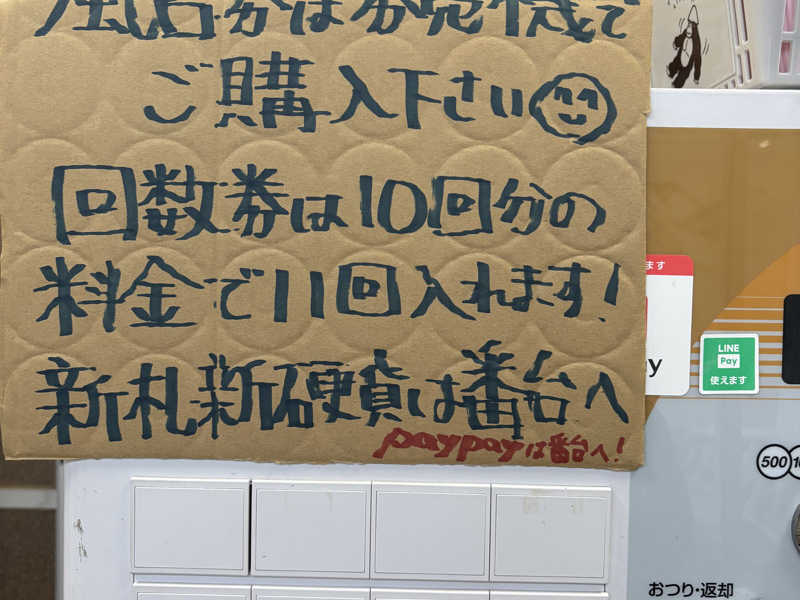 風呂券は券売機で
ご購入下さい
回数券は10回分の
料金で11回入れます!
新札新硬貨は番台へ
paypayは番台へ!
ます
ay
LINE
Pay
使えます
500
おつり・返却